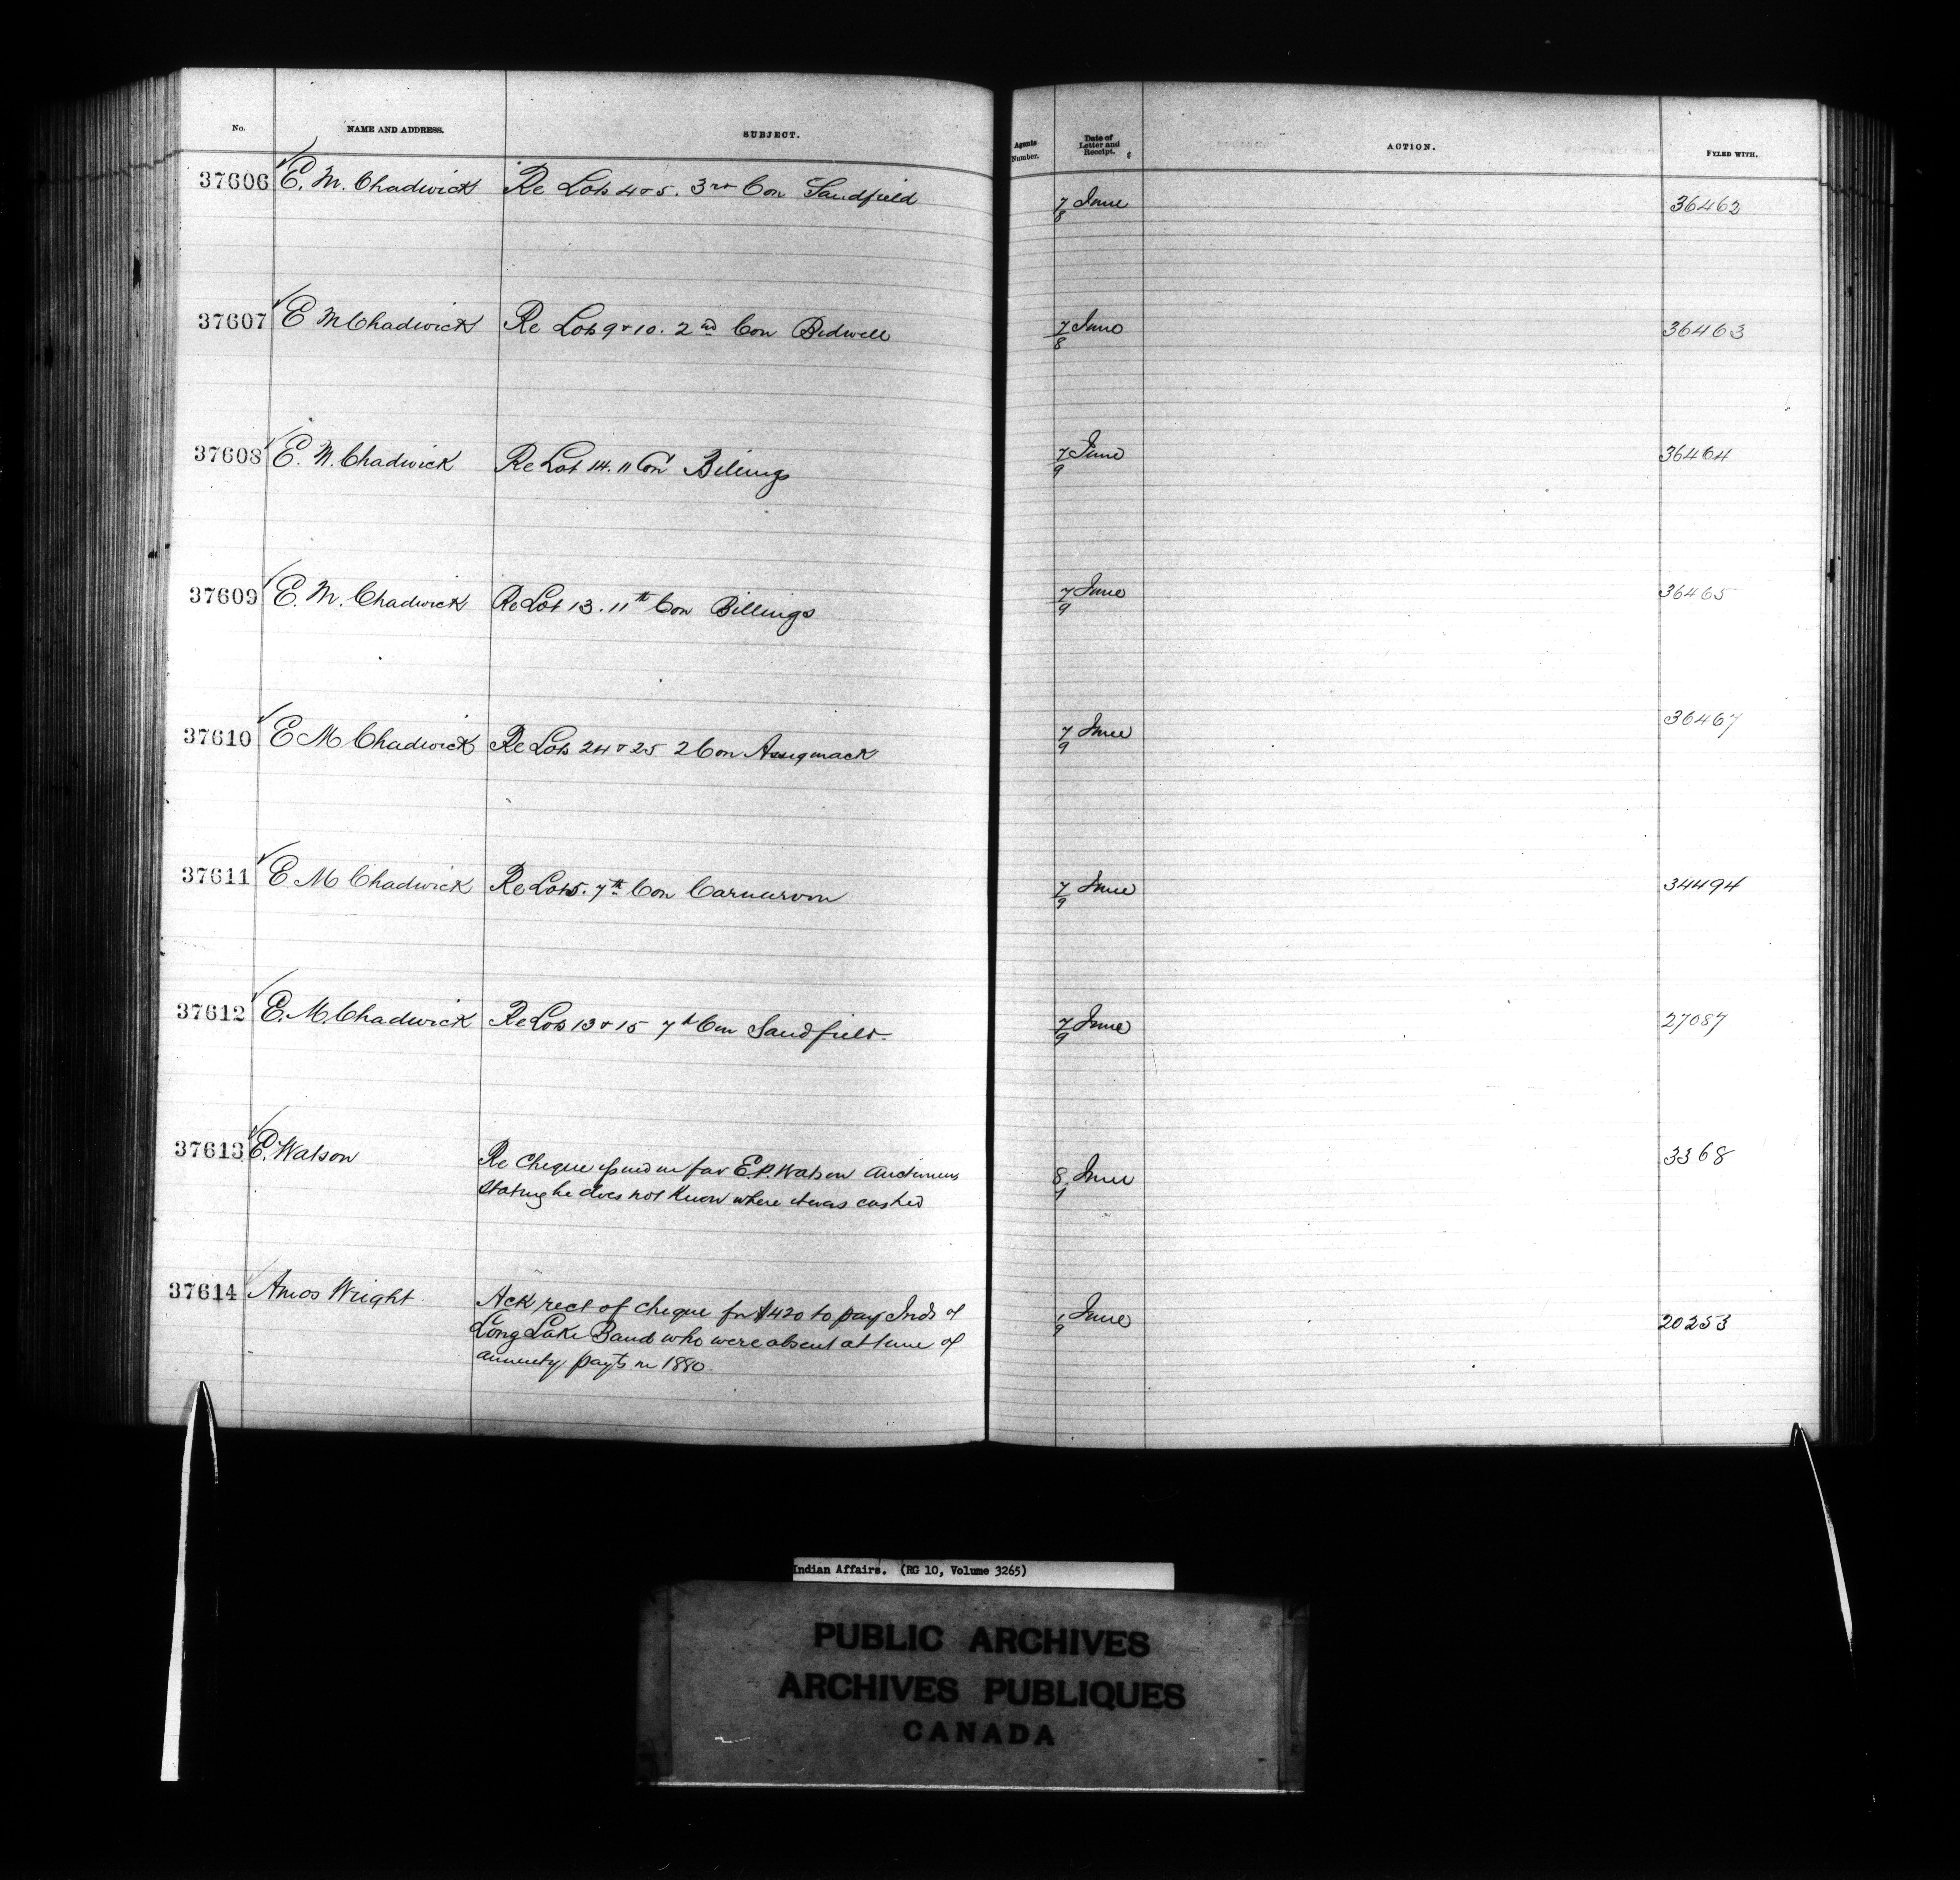 No. NAME AND ADDRESS. SUBJECT. Agents Number. Date of Letter and Receipt. ACTION. FYLED WITH.
37606 E. M. Chadwick Re Lots 4 & 5. 3rd Con Sandfield 7/8 June 36462
37607 E M Chadwick Re Lots 9 & 10. 2nd Con Bidwell 7/8 June 36463
37608 E. M. Chadwick Re Lot 14. 11 Con Billings 7/9 June 36464
37609 E. M. Chadwick Re Lot 13. 11th Con Billings 7/9 June 36465
37610 E M Chadwick Re Lots 24 & 25 2 Con Assiginack 7/9 June 36467
37611 E M Chadwick Re Lot 5. 7th Con Carnarvon 7/9 June 34494
37612 E. M. Chadwick Re Lots 13 & 15 7th Con Sandfield. 7/9 June 27087
37613 E. Watson Re Cheque issued in fav E.P. Watson 8/9 June 3368
Stating he does not Know where it was cashed
37614 Amos Wright Ack rect of cheque for $420 to pay Inds of 1/9 June 20253
Long Lake Band who were absent at time of
annuity payts in 1880.
Indian Affairs. (RG 10, Volume 3265)
PUBLIC ARCHIVES
ARCHIVES PUBLIQUES
CANADA